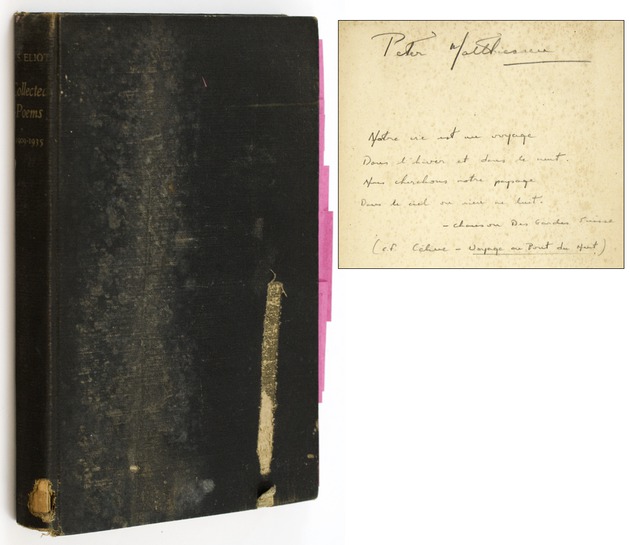 T.S. ELIOT
Collected
Poems
1909-1935
Peter Matthiessen
Notre vie est un voyage
Dans l'hiver et dans la nuit.
Nous cherchons notre passage
Dans le ciel où rien ne luit.
- chanson Des Gardes Suisse
(cf. Céline - Voyage au Bout du Nuit)